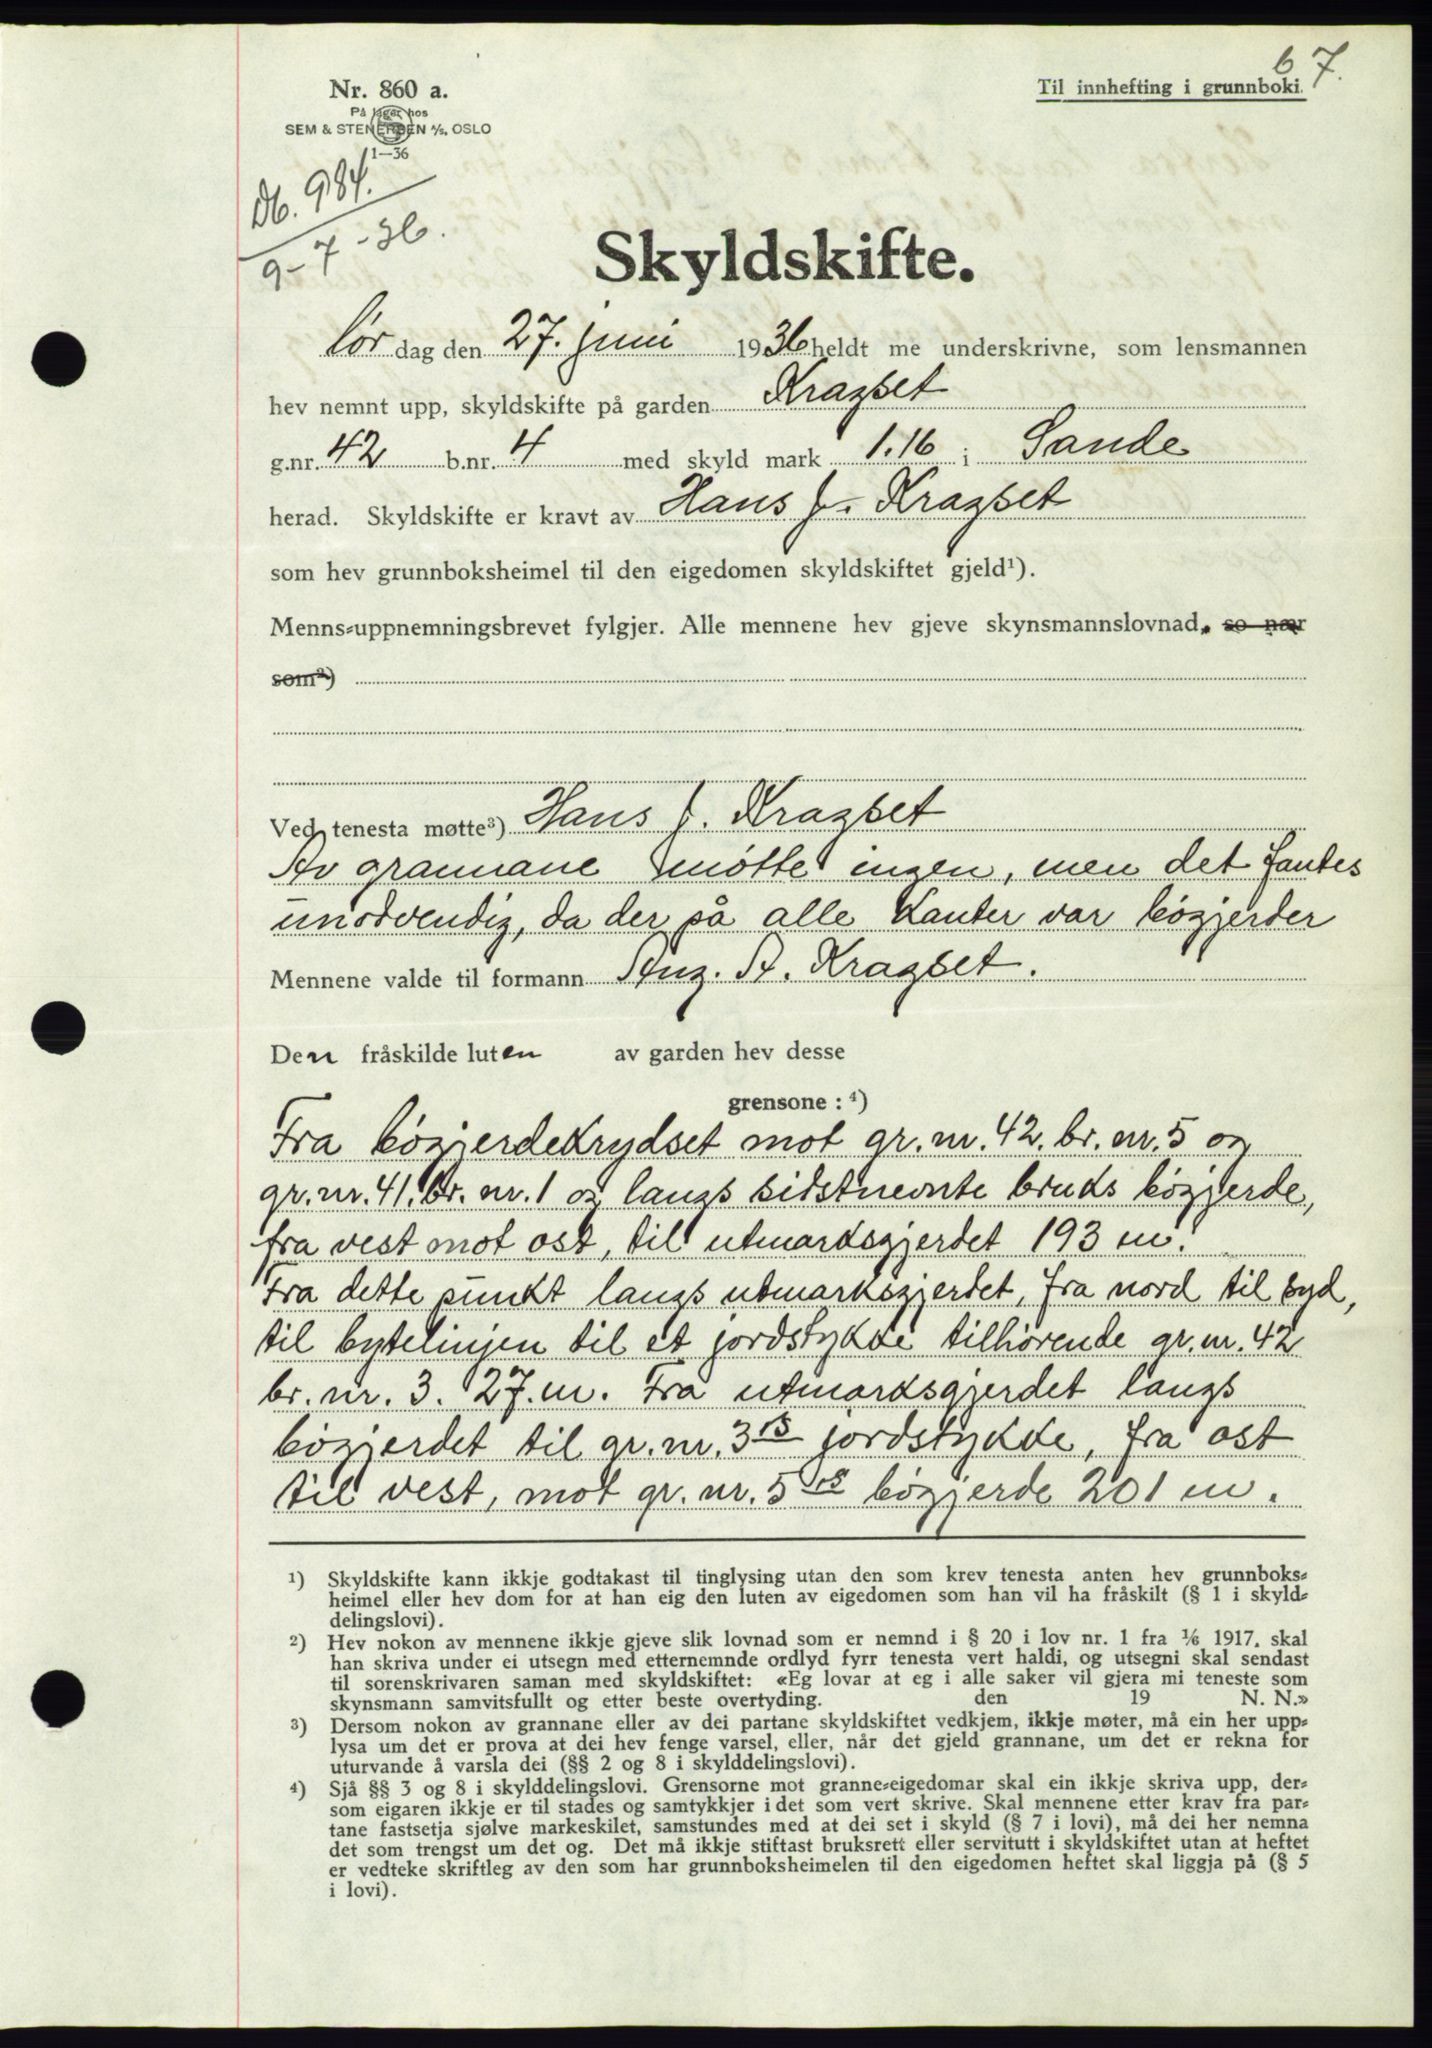 67.
Nr. 860 a.
På lager hos
SEM & STENERSEN A/S, OSLO
1—36
Til innhefting i grunnboki.
Db. 984.
9-7-36.
Skyldskifte.
lørdag den 27. juni 1936 heldt me underskrivne, som lensmannen
hev nemnt upp, skyldskifte på garden Kragset
g.nr. 42 b.nr. 4 med skyld mark 1.16 i Sande
herad. Skyldskifte er kravt av Hans J. Kragset
som hev grunnboksheimel til den eigedomen skyldskiftet gjeld¹).
Menns-uppnemningsbrevet fylgjer. Alle mennene hev gjeve skynsmannslovnad, so nær
som²)
Ved tenesta møtte³) Hans J. Kragset
Av grannane møtte ingen, men det fantes
unødvendig, da der på alle kanter var bøgjerder
Mennene valde til formann Ang. A. Kragset.
Den fråskilde luten av garden hev desse
grensone: ⁴)
Fra bøgjerdekrydset mot gr. nr. 42. br. nr. 5 og
gr. nr. 41. br. nr. 1 og langs sidstnevnte bruks bøgjerde,
fra vest mot øst, til utmarksgjerdet 193 m.
Fra dette punkt langs utmarksgjerdet, fra nord til syd,
til bytelinjen til et jordstykke tilhørende gr. nr. 42
br. nr. 3. 27. m. Fra utmarksgjerdet langs
bøgjerdet til gr. nr. 3rs jordstykke, fra øst
til vest, mot gr. nr. 5rs bøgjerde 201 m.
¹) Skyldskifte kann ikkje godtakast til tinglysing utan den som krev tenesta anten hev grunnboks-
heimel eller hev dom for at han eig den luten av eigedomen som han vil ha fråskilt (§ 1 i skyld-
delingslovi).
²) Hev nokon av mennene ikkje gjeve slik lovnad som er nemnd i § 20 i lov nr. 1 fra 1/6 1917, skal
han skriva under ei utsegn med etternemnde ordlyd fyrr tenesta vert haldi, og utsegni skal sendast
til sorenskrivaren saman med skyldskiftet: «Eg lovar at eg i alle saker vil gjera mi teneste som
skynsmann samvitsfullt og etter beste overtyding. den 19 N. N.»
³) Dersom nokon av grannane eller av dei partane skyldskiftet vedkjem, ikkje møter, må ein her upp-
lysa um det er prova at dei hev fenge varsel, eller, når det gjeld grannane, um det er rekna for
uturvande å varsla dei (§§ 2 og 8 i skylddelingslovi).
⁴) Sjå §§ 3 og 8 i skylddelingslovi. Grensorne mot granne-eigedomar skal ein ikkje skriva upp, der-
som eigaren ikkje er til stades og samtykkjer i det som vert skrive. Skal mennene etter krav fra par-
tane fastsetja sjølve markeskilet, samstundes med at dei set i skyld (§ 7 i lovi), må dei her nemna
det som trengst um det og. Det må ikkje stiftast bruksrett eller servitutt i skyldskiftet utan at heftet
er vedteke skriftleg av den som har grunnboksheimelen til den eigedomen heftet skal liggja på (§ 5
i lovi).